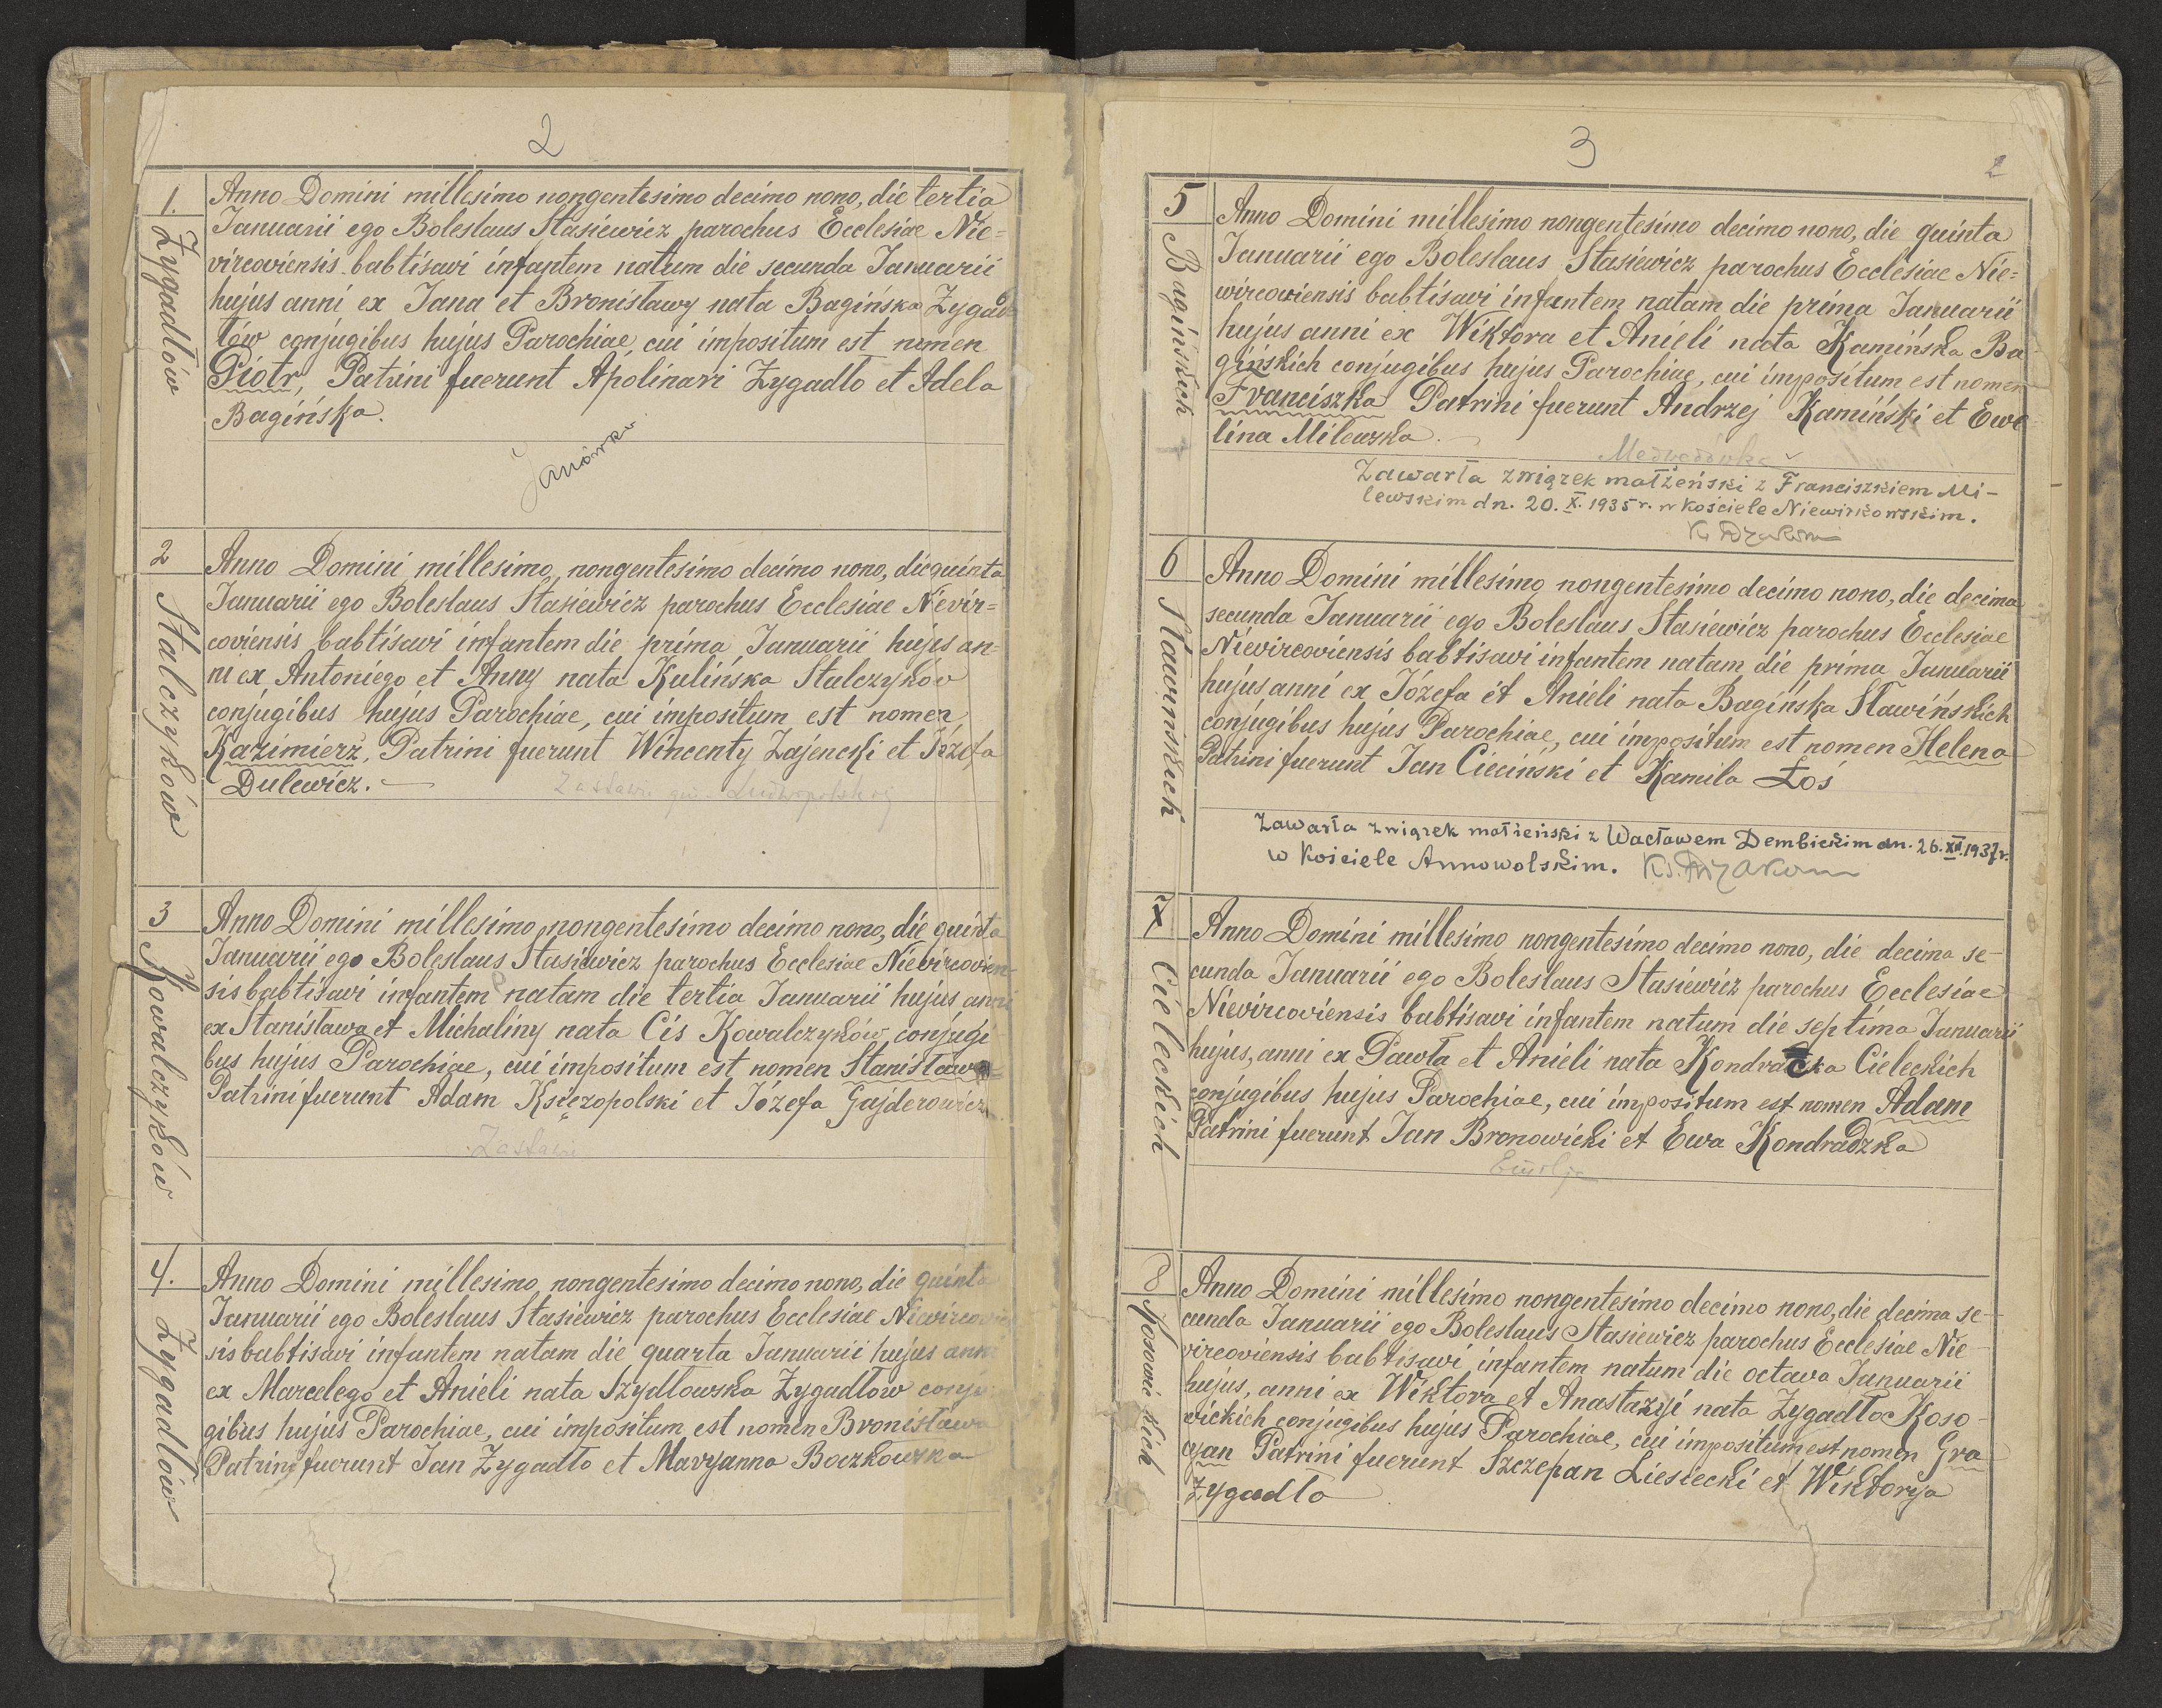 2
1.
Zygadłów
Anno Domini millesimo nongentesimo decimo nono, die tertia
Januarii ego Boleslaus Stasiewicz parochus Ecclesiae Nie=
vircoviensis babtisavi infantem natum die secunda Januarii
hujus anni ex Jana et Bronisławy nata Bagińska Zygad
łów conjugibus hujus Parochiae, cui impositum est nomen
Piotr, Patrini fuerunt Apolinari Zygadło et Adela
Bagińska.
Janówka
2
Stalczyków
Anno Domini millesimo, nongentesimo decimo nono, die quinta
Januarii ego Boleslaus Stasiewicz parochus Ecclesiae Nievir=
coviensis babtisavi infantem die prima Januarii hujus an=
ni ex Antoniego et Anny nata Kulińska Stalczyków
conjugibus hujus Parochiae, cui impositum est nomen
Kazimierz, Patrini fuerunt Wincenty Zajencki et Józefa
Dulewicz.
Zastawie gm. Ludwopolskiej
3
Kowalczyków
Anno Domini millesimo nongentesimo decimo nono, die quinta
Januarii ego Boleslaus Stasiewicz parochus Ecclesiae Nievircovien-
sis babtisavi infantem natam die tertia Januarii hujus anni
ex Stanisława et Michaliny nata Cis Kowalczyków conjugi
bus hujus Parochiae, cui impositum est nomen Stanisława
Patrini fuerunt Adam Księzopolski et Józefa Gajderowicz
Zastawie
4.
Zygadłów
Anno Domini millesimo nongentesimo decimo nono, die quinta
Januarii ego Boleslaus Stasiewicz parochus Ecclesiae Niewircovien
sis babtisavi infantem natam die quarta Januarii hujus anni
ex Marcelego et Anieli nata Szydlowska Zygadlow conju
gibus hujus Parochiae, cui impositum est nomen Bronisława
Patrini fuerunt Jan Zygadło et Maryanna Boczkowska
3
2
5
Bagińskich
Anno Domini millesimo nongentesimo decimo nono, die quinta
Januarii ego Boleslaus Stasiewicz parochus Ecclesiae Nie=
wircoviensis babtisavi infantem natam die prima Januarii
hujus anni ex Wiktora et Anieli nata Kamińska Ba
gińskich conjugibus hujus Parochiae, cui impositum est nomen
Franciszka Patrini fuerunt Andrzej Kamiński et Ewe
lina Milewska.
Medwedówka
Zawarła związek małżeński z Franciszkiem Mi-
lewskim dn. 20. X. 1935 r. w kościele Niewirkowskim.
6
Sławińskich
Anno Domini millesimo nongentesimo decimo nono, die decima
secunda Januarii ego Boleslaus Stasiewicz parochus Ecclesiae
Nievircoviensis babtisavi infantem natam die prima Januarii
hujus anni ex Józefa et Anieli nata Bagińska Sławińskich
conjugibus hujus Parochiae, cui impositum est nomen Helena
Patrini fuerunt Jan Cieciński et Kamila Łoś
Zawarła związek małżeński z Wacławem Dembickim dn. 26. XII. 1937 r.
w kościele Annowolskim.
7
Cieleckich
Anno Domini millesimo nongentesimo decimo nono, die decima se-
cunda Januarii ego Boleslaus Stasiewicz parochus Ecclesiae
Nievircoviensis babtisavi infantem natum die septima Januarii
hujus, anni ex Pawła et Anieli nata Kondracka Cieleckich
conjugibus hujus Parochiae, cui impositum est nomen Adam
Patrini fuerunt Jan Bronowicki et Ewa Kondradzka
Emilja
8
Kosowickich
Anno Domini millesimo nongentesimo decimo nono, die decima se-
cunda Januarii ego Boleslaus Stasiewicz parochus Ecclesiae Nie-
vircoviensis babtisavi infantem natum die octava Januarii
hujus, anni ex Wiktora et Anastazyi nata Zygadło Koso-
wickich conjugibus hujus Parochiae, cui impositum est nomen Gra
cyan Patrini fuerunt Szczepan Liesiecki et Wiktorya
Zygadło